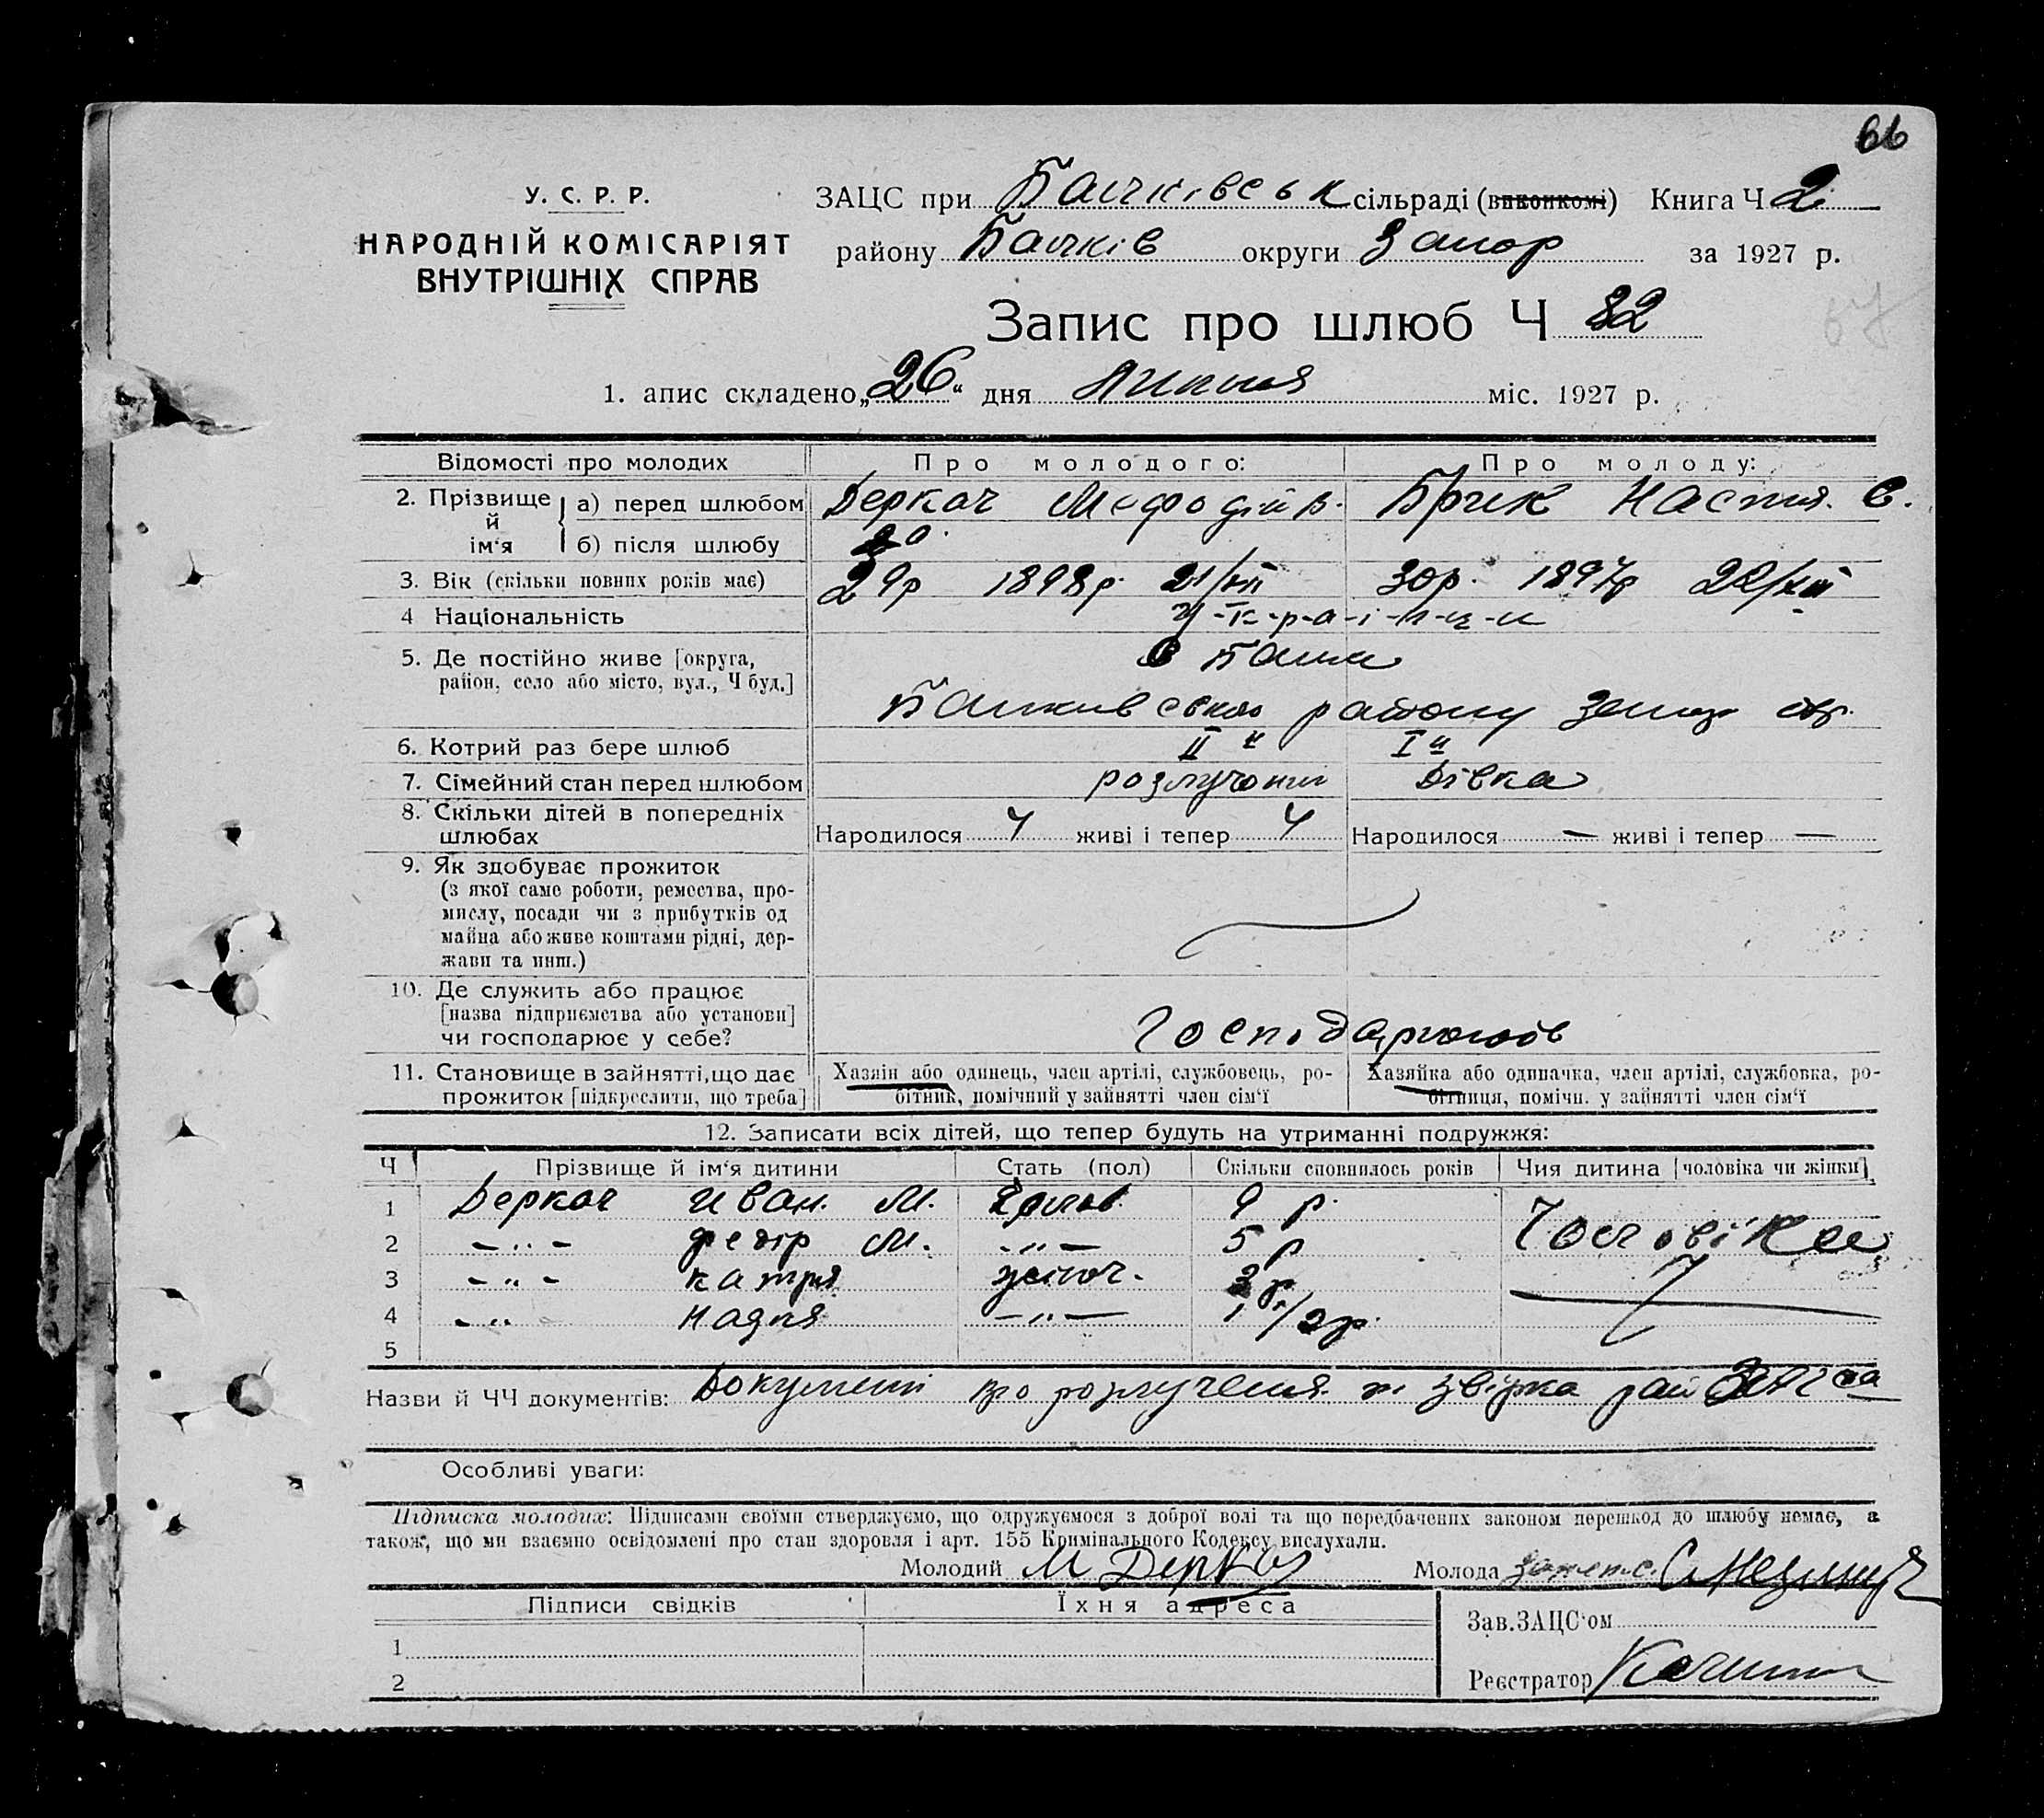 66
У. С. Р. Р.
НАРОДНІЙ КОМІСАРІЯТ
ВНУТРІШНІХ СПРАВ
ЗАЦС при Балківськ сільраді (виконкомі) Книга Ч 2
району Балків округи Запор за 1927 р.
Запис про шлюб Ч 82
67
1. апис складено „26“ дня липня міс. 1927 р.
Відомості про молодих Про молодого: Про молоду:
2. Прізвище й ім‘я а) перед шлюбом Деркач Мефодій В. Брик Настя. С.
б) після шлюбу
3. Вік (скільки повних років має) 29р 1898р. 21/VII 30р. 1897р 22/XII
4 Національність У-к-р-а-ї-н-ц-и
5. Де постійно живе [округа, район, село або місто, вул., Ч буд.] с Балки
Балківського району Запор окр.
6. Котрий раз бере шлюб II й I й
7. Сімейний стан перед шлюбом розлучоний дівка
8. Скільки дітей в попередніх шлюбах Народилося 4 живі і тепер 4 Народилося — живі і тепер —
9. Як здобуває прожиток
(з якої саме роботи, ремества, про-
мислу, посади чи з прибутків од
майна або живе коштами рідні, дер-
жави та инш.)
10. Де служить або працює
[назва підприємства або установи]
чи господарює у себе?
11. Становище в зайнятті, що дає Хазяїн або одинець, член артілі, службовець, ро- Хазяйка або одиначка, член артілі, службовка, ро-
прожиток [підкреслити, що треба] бітник, помічний у зайнятті член сім‘ї бітниця, помічн. у зайнятті член сім‘ї
12. Записати всіх дітей, що тепер будуть на утриманні подружжя:
Ч Прізвище й ім‘я дитини Стать (пол) Скільки сповнилось років Чия дитина [чоловіка чи жінки]
1 Деркач Иван. М. Чолов. 9 р.
2 -„- Федір М. -„- 5 р Чоловіка
3 -„- Катря жіноч. 3 р.
4 -„ Надия -„- 1/2р.
5
Назви й ЧЧ документів: Документ про розлучення
Особливі уваги:
Підписка молодих: Підписами своїми стверджуємо, що одружуємося з доброї волі та що передбачених законом перешкод до шлюбу немає, а
також, що ми взаємно освідомлені про стан здоровля і арт. 155 Кримінального Кодексу вислухали.
Молодий М Деркач Молода
Підписи свідків Їхня адреса
Зав. ЗАЦС‘ом
1
Реєстратор
2